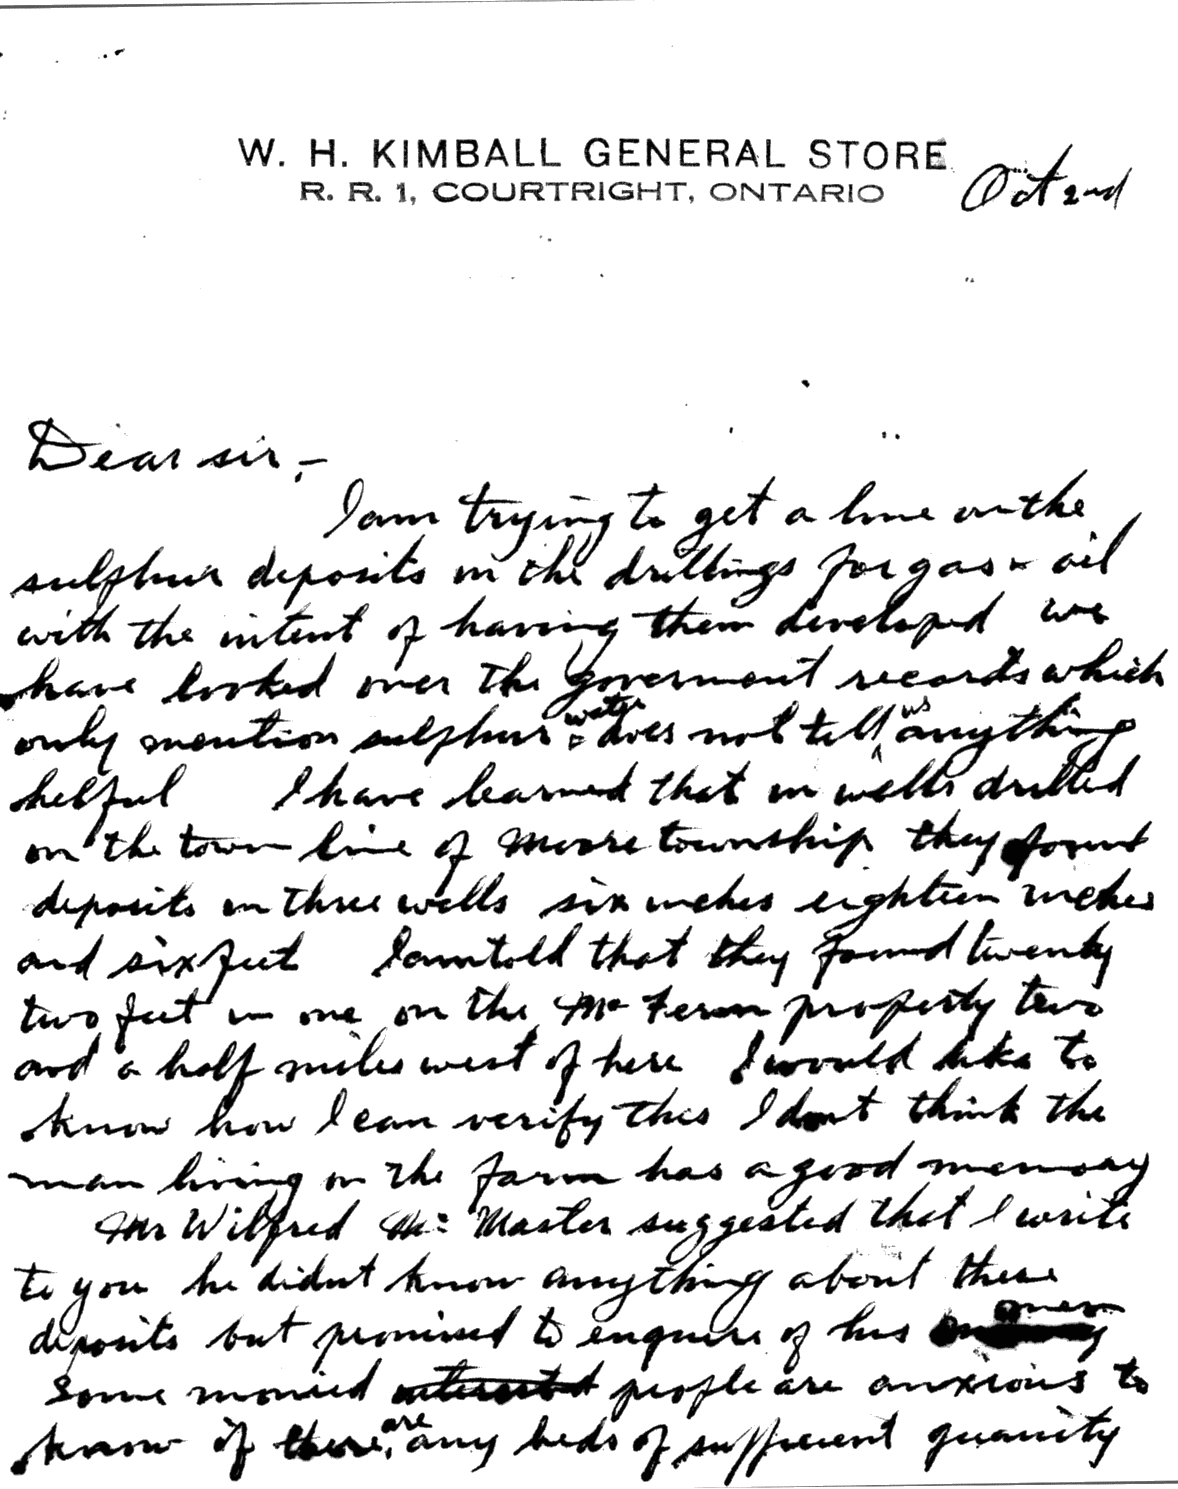 W. H. KIMBALL GENERAL STORE
R. R. 1, COURTRIGHT, ONTARIO
Oct 2nd
Dear sir,-
I am trying to get a line on the
sulphur deposits in the drillings for gas & oil
with the intent of having them developed we
have looked over the goverment records which
only mention sulphur water & does not tell us anything
helpful I have learned that in wells drilled
on the town line of Moore township they found
deposits in three wells six inches eighteen inches
and six feet I am told that they found twenty
two feet in one on the Mc property two
and a half miles west of here I would like to
know how I can verify this I dont think the
man living on the farm has a good memory
Mr Wilfred Mc Master suggested that I write
to you he didnt know anything about these
deposits but promised to enquire of his
some monied interested people are anxious to
know if there are any beds of sufficient quanity